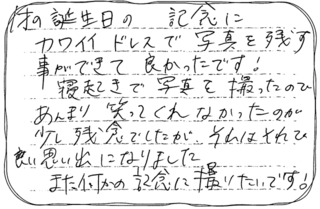 1才の誕生日の 記念に
カワイイ ドレスで 写真を残す
事ができて 良かったです!
寝起きで 写真を 撮ったので
あんまり 笑ってくれなかったのが
少し残念でしたが、それはそれで
良い思い出になりました
また何かの記念に撮りたいです!